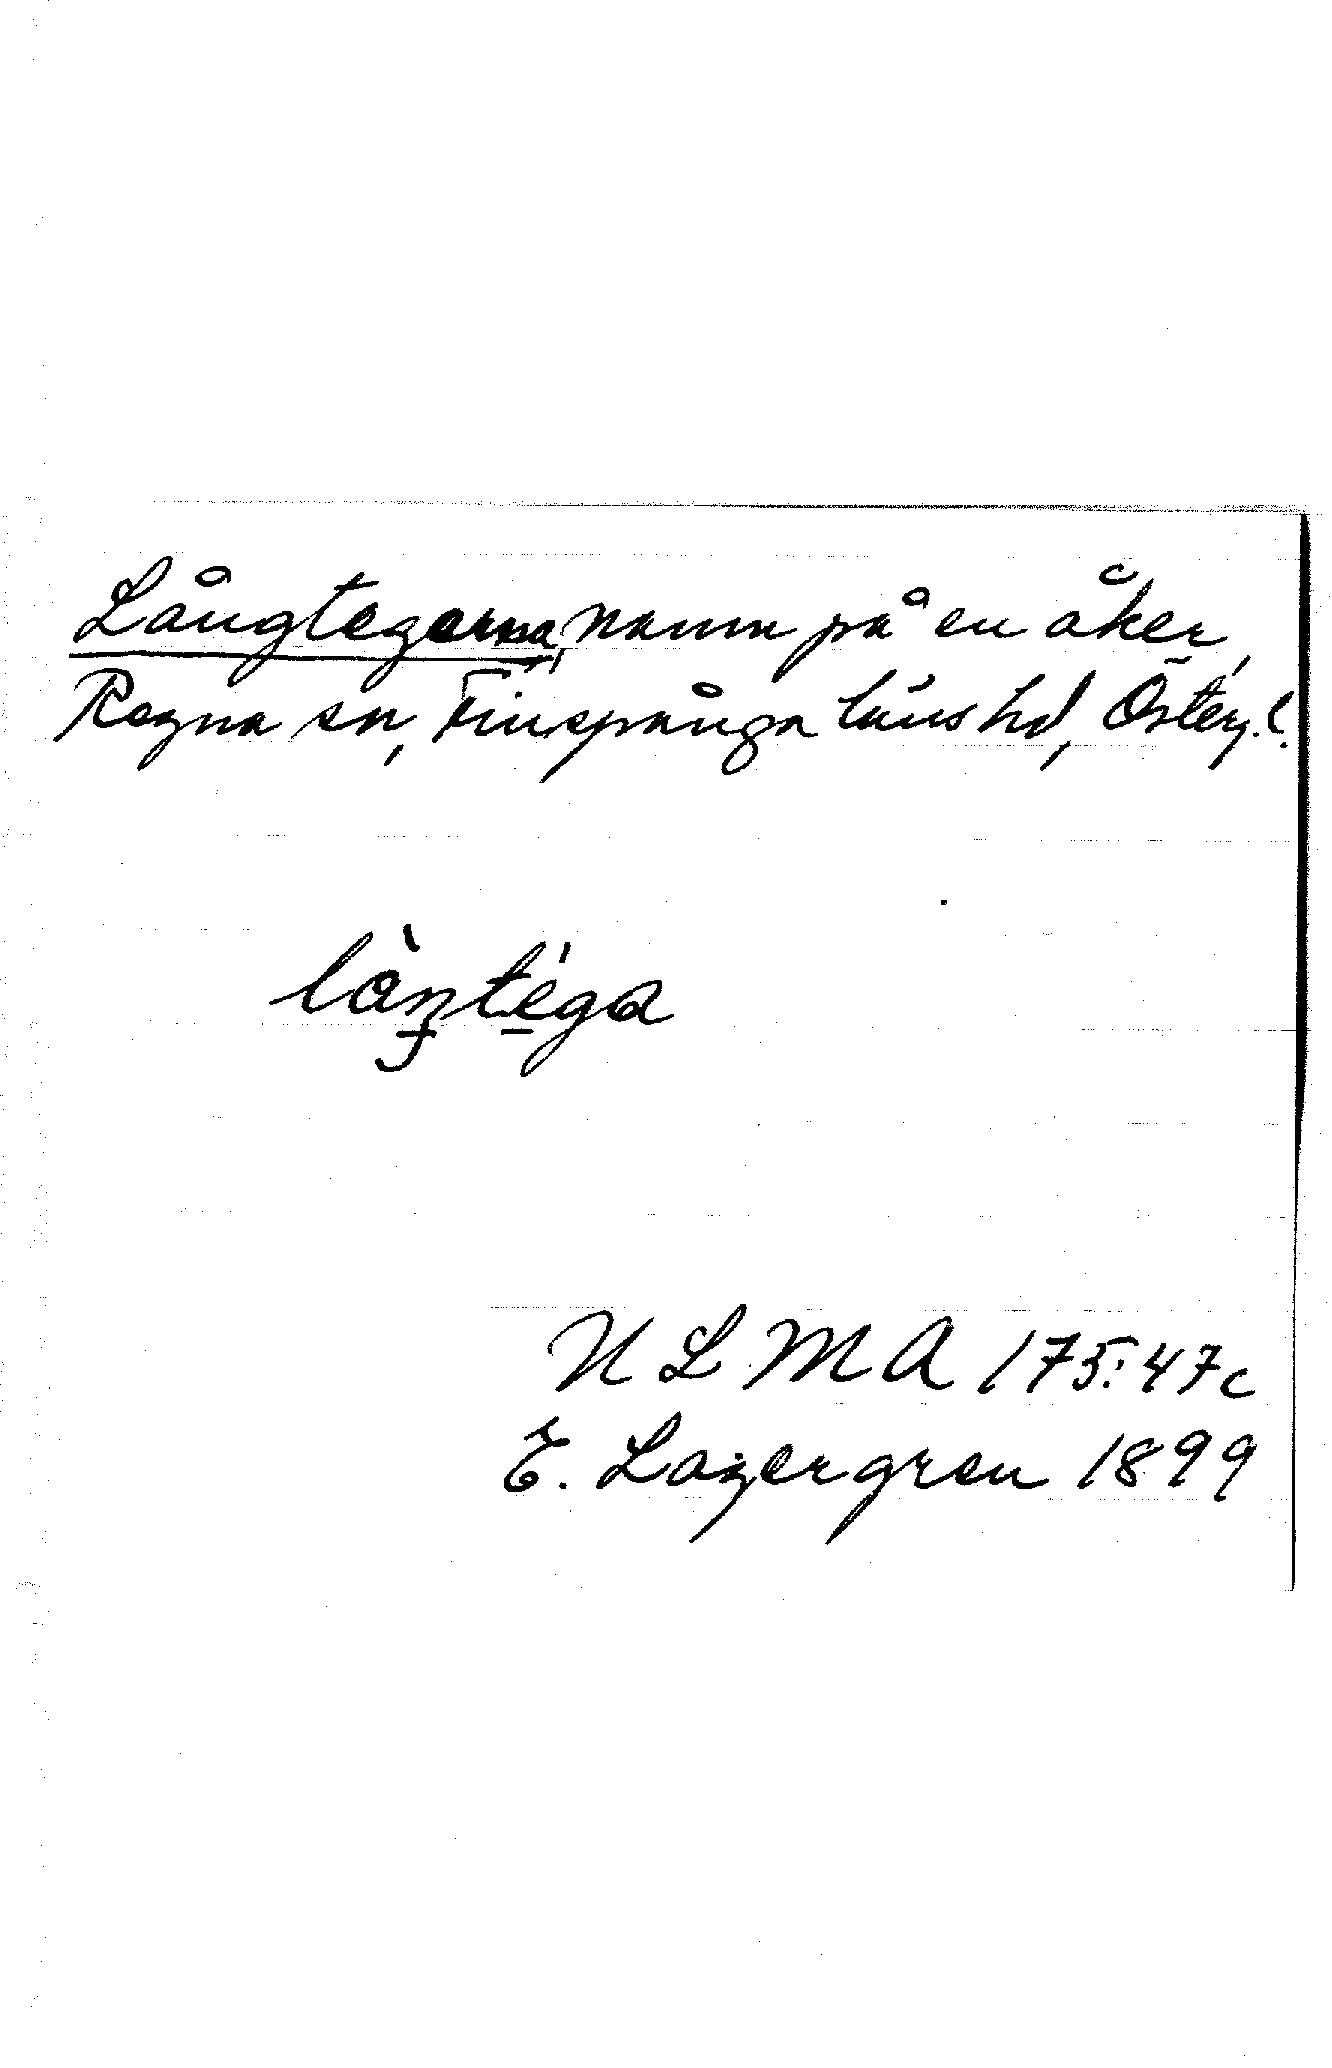 Långtegarna, namn på en åker,
Regna sn, Finspånga läns hd, Österg. l.
làŋtéga
ULMA 175:47c
E. Lagergren 1899